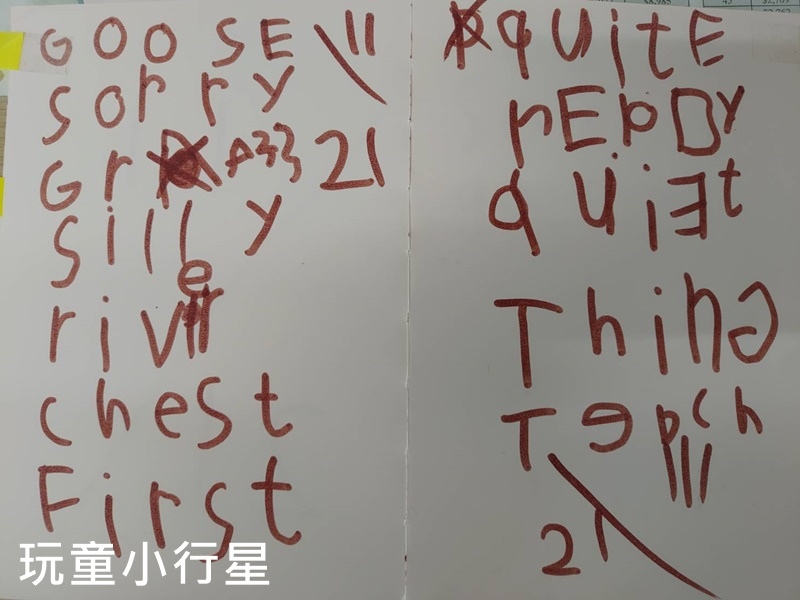 GOOSE \11
sorry
Gr A33 21
silly
river
chest
First
quitE
rEpDy
quiEt
Thing
Tepch
21
玩童小行星